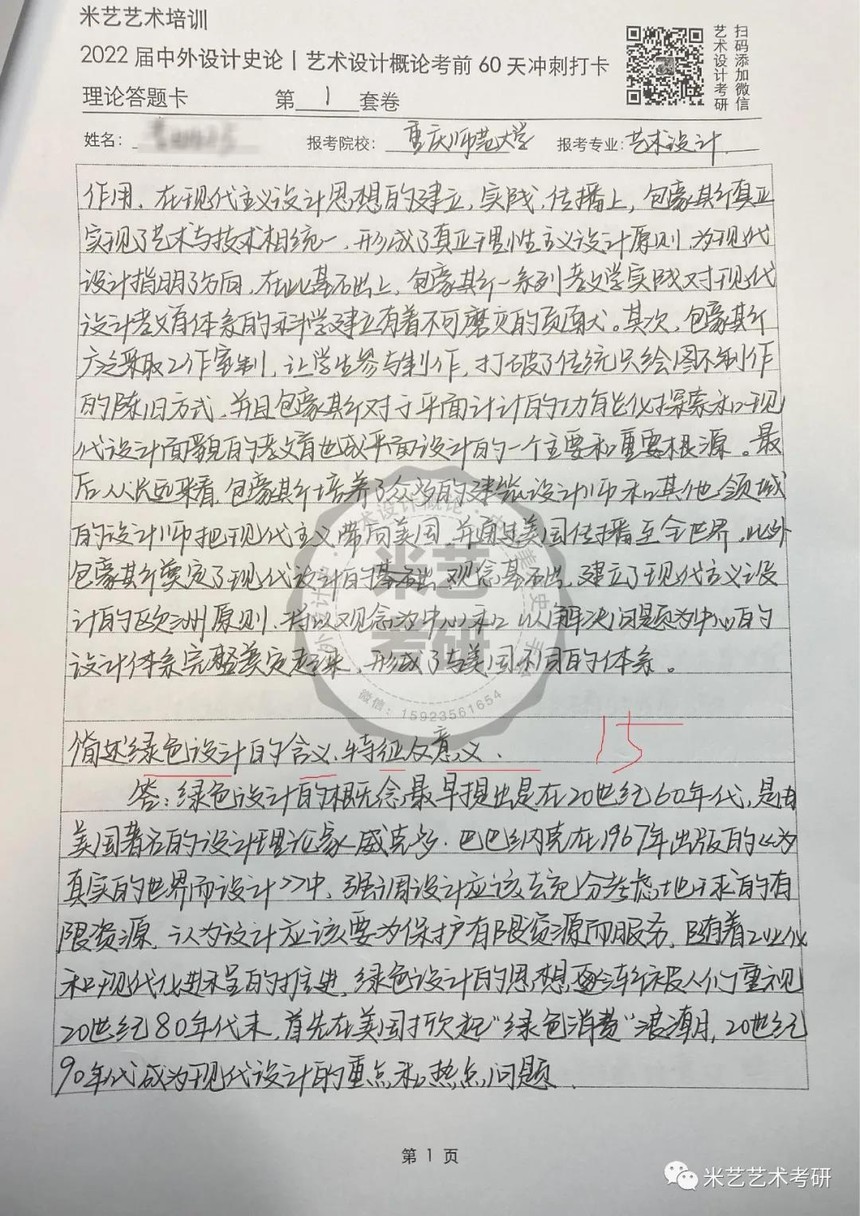 米艺艺术培训
2022届中外设计史论丨艺术设计概论考前60天冲刺打卡
扫码添加微信
艺术设计考研
理论答题卡 第 1 套卷
姓名： 报考院校：重庆师范大学 报考专业：艺术设计
作用。在现代主义设计思想的建立，实践，传播上，包豪斯真正
实现了艺术与技术相统一，形成了真正理性主义设计原则，为现代
设计指明了方向，在此基础上，包豪斯一系列教学实践对现代
设计教育体系的科学建立有着不可磨灭的贡献。其次，包豪斯
广泛采取工作室制，让学生参与制作，打破了传统只绘图不制作
的陈旧方式，并且包豪斯对于平面计计的功能化探索和现
代设计面貌的教育也成平面设计的一个主要和重要根源。最
后从长远来看，包豪斯培养了众多的建筑设计师和其他领域
的设计师把现代主义带向美国，并通过美国传播至全世界，此外
包豪斯奠定了现代设计的基础，观念基础，建立了现代主义设
计的欧洲原则，将以观念为中心和以解决问题为中心的
设计体系完整奠定起来，形成了与美国不同的体系。
米艺
考研
微信：15923561654
15
简述绿色设计的含义、特征及意义.
答：绿色设计的概念，最早提出是在20世纪60年代，是由
美国著名的设计理论家威克多·巴巴纳克在1967年出版的《为
真实的世界而设计》中，强调设计应该去充分考虑地球的有
限资源，认为设计应该要为保护有限资源而服务，随着工业化
和现代化进程的推进，绿色设计的思想逐渐被人们重视
20世纪80年代末，首先在美国掀起"绿色消费"浪潮，20世纪
90年代成为现代设计的重点和热点问题.
第 1 页
米艺艺术考研